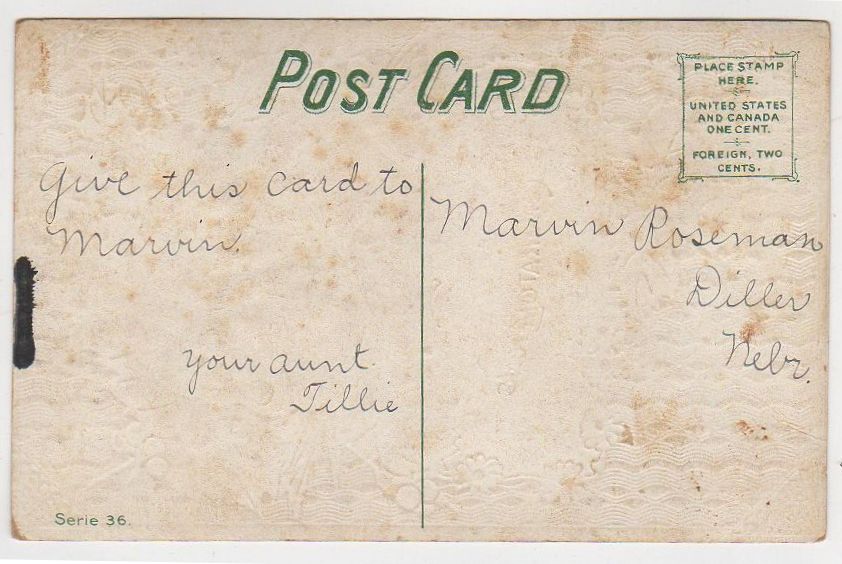 POST CARD
PLACE STAMP
HERE.
UNITED STATES
AND CANADA
ONE CENT.
FOREIGN, TWO
CENTS.
Give this card to
Marvin.
your aunt
Tillie
Marvin Roseman
Diller
Nebr.
Serie 36.